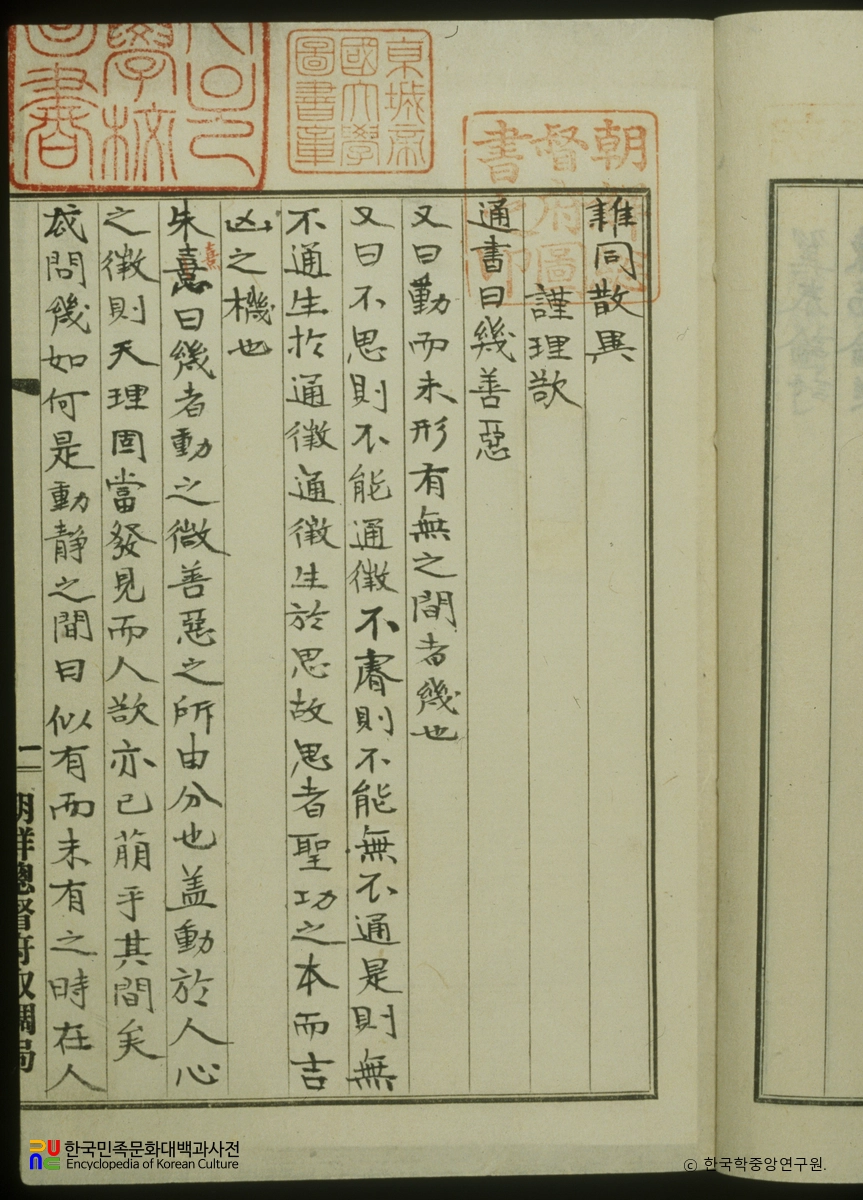 朝鮮總督府圖書之印
京城帝國大學圖書章
學校
圖書
雜同散異
謹理欲
通書曰幾善惡
又曰動而未形有無之間者幾也
又曰不思則不能通微不睿則不能無不通是則無
不通生於通微通微生於思故思者聖功之本而吉
凶之機也
朱熹曰幾者動之微善惡之所由分也盖動於人心
熹
之微則天理固當發見而人欲亦已萠乎其間矣
或問幾如何是動静之間曰似有而未有之時在人
一
朝鮮總督府取調局
한국민족문화대백과사전
Encyclopedia of Korean Culture
ⓒ 한국학중앙연구원.